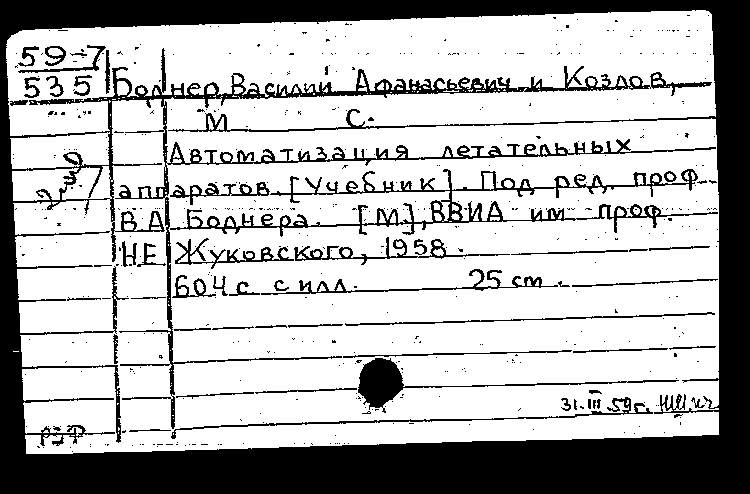 59-7
535
Боднер, Василий Афанасьевич и Козлов,
М С.
Автоматизация летательных
аппаратов. [Учебник]. Под ред. проф
В А Боднера. [М], ВВИА им проф.
НЕ Жуковского, 1958.
604 с с илл. 25 cm.
31.III.59г.